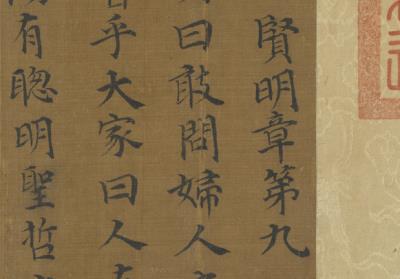 賢明章第九
曰敢問婦人
乎大家曰人
有聰明聖哲